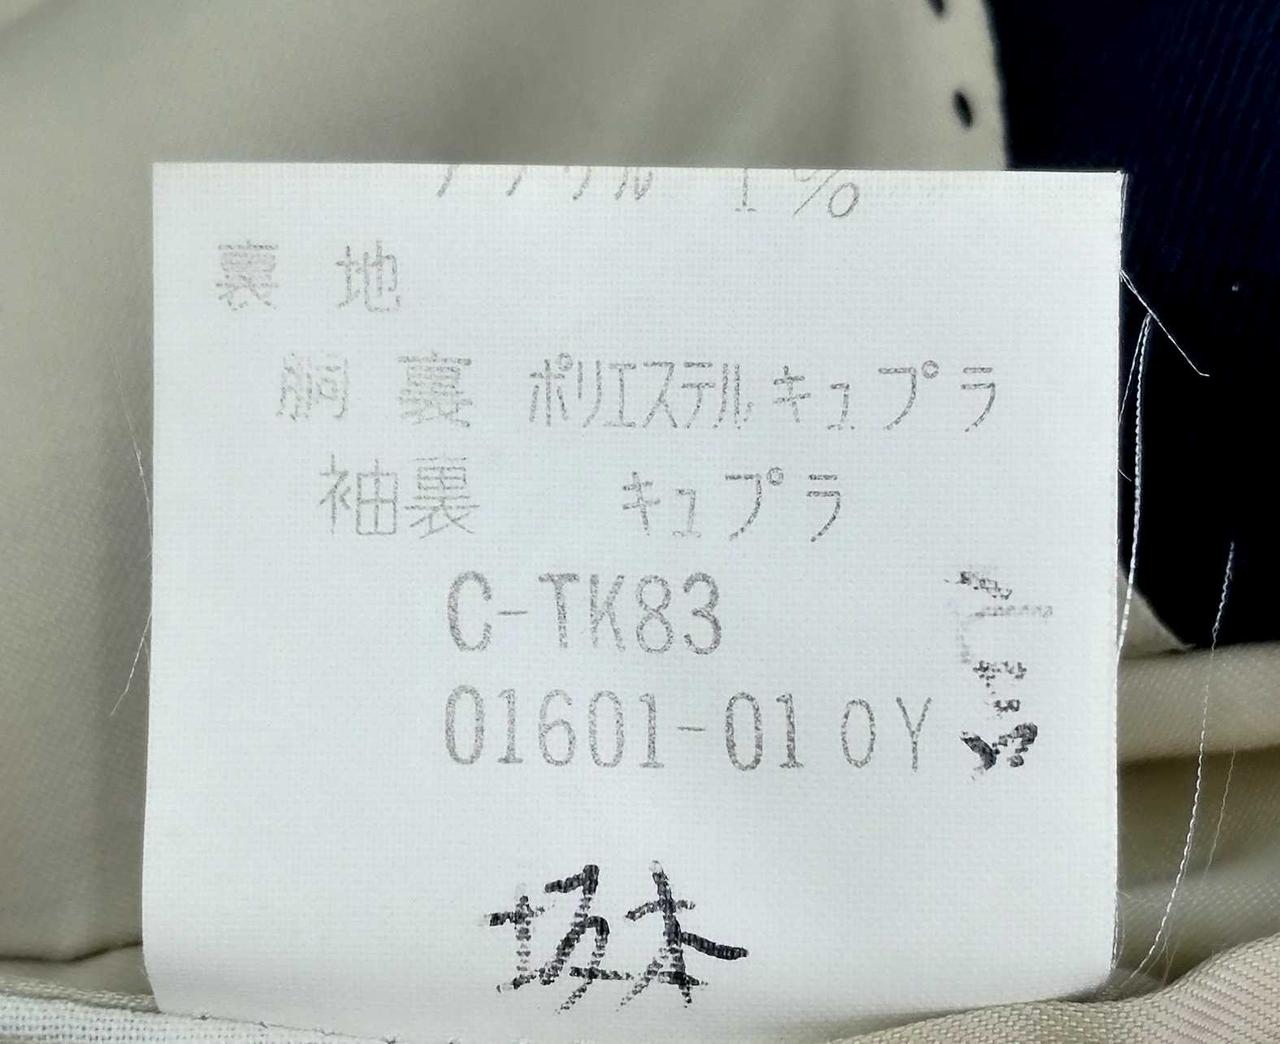 1%
裏地
胴裏 ポリエステルキュプラ
袖裏 キュプラ
C-TK83
01601-01 0Y
坂本